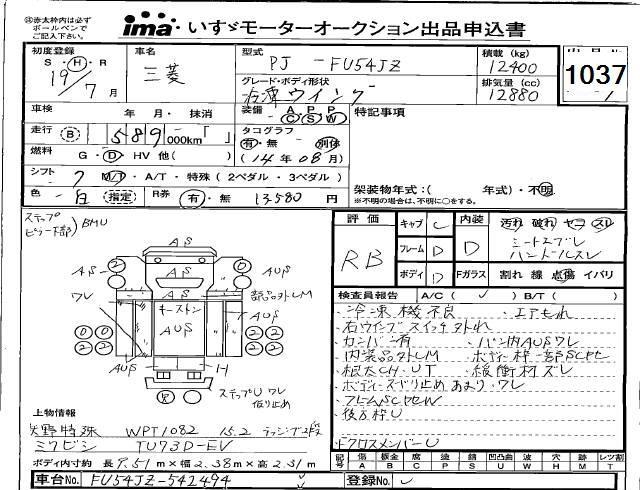 ㊟赤太枠内は必ず
ボールペンで
ご記入下さい。
ima いすゞモーターオークション出品申込書
初度登録
S・H・R
19/7月
車名
三菱
型式
PJ-FU54JZ
グレード・ボディ形状
冷凍ウイング
積載 (kg)
12400
排気量 (cc)
12880
1037
車検 年・月・抹消
装備 A C P S P W
特記事項
走行 B 589 000km「 」
タコグラフ
有・無 別体
(14年08月)
燃料 G・D・HV 他( )
シフト 7 M/T・A/T・特殊(2ペダル・3ペダル)
色 白 指定
R券 有・無 13580円
架装物年式:( 年式)・不明
※不明の場合は、不明に○をする。
ステップ
ピラー下部) BMU
評価
RB
キャブ C
フレーム D
ボディ D
内装 D
Fガラス
汚れ 破れ ヤコ スレ
シートスブレ
ハンドルスレ
割れ 線 点傷 イバリ
検査員報告 A/C( ✓ ) B/T( )
・冷凍機不良 ・エアもれ
・右ウイングスイッチ外れ
・カンバン有 ・バン内AUSワレ
・内装品外LM ・ボディ枠一部SCセセ
・根太CH.UT ・緩衝材ズレ
・ボディースベリ止めあまり・ワレ
・フレームSCセセW
・後方枠U
・ドクロスメンバーU
AS
AS
AUS
AUS
部品外LM
ワレ
キーストン
AUS
AUS
AUS
H
ステップU ワレ
仮り止め
上物情報
矢野特殊 WPT1082 15.2
ミツビシ TU73D-EV
ボディ内寸約 長9.51m×幅2.38m×高2.31m
記号 キズ A 板金 B 腐 C 塗 P 錆 S 凹凸曲 U 波 W 穴 H 跡 M レンズ割 T
車台No. FU54JZ-542494
登録No.